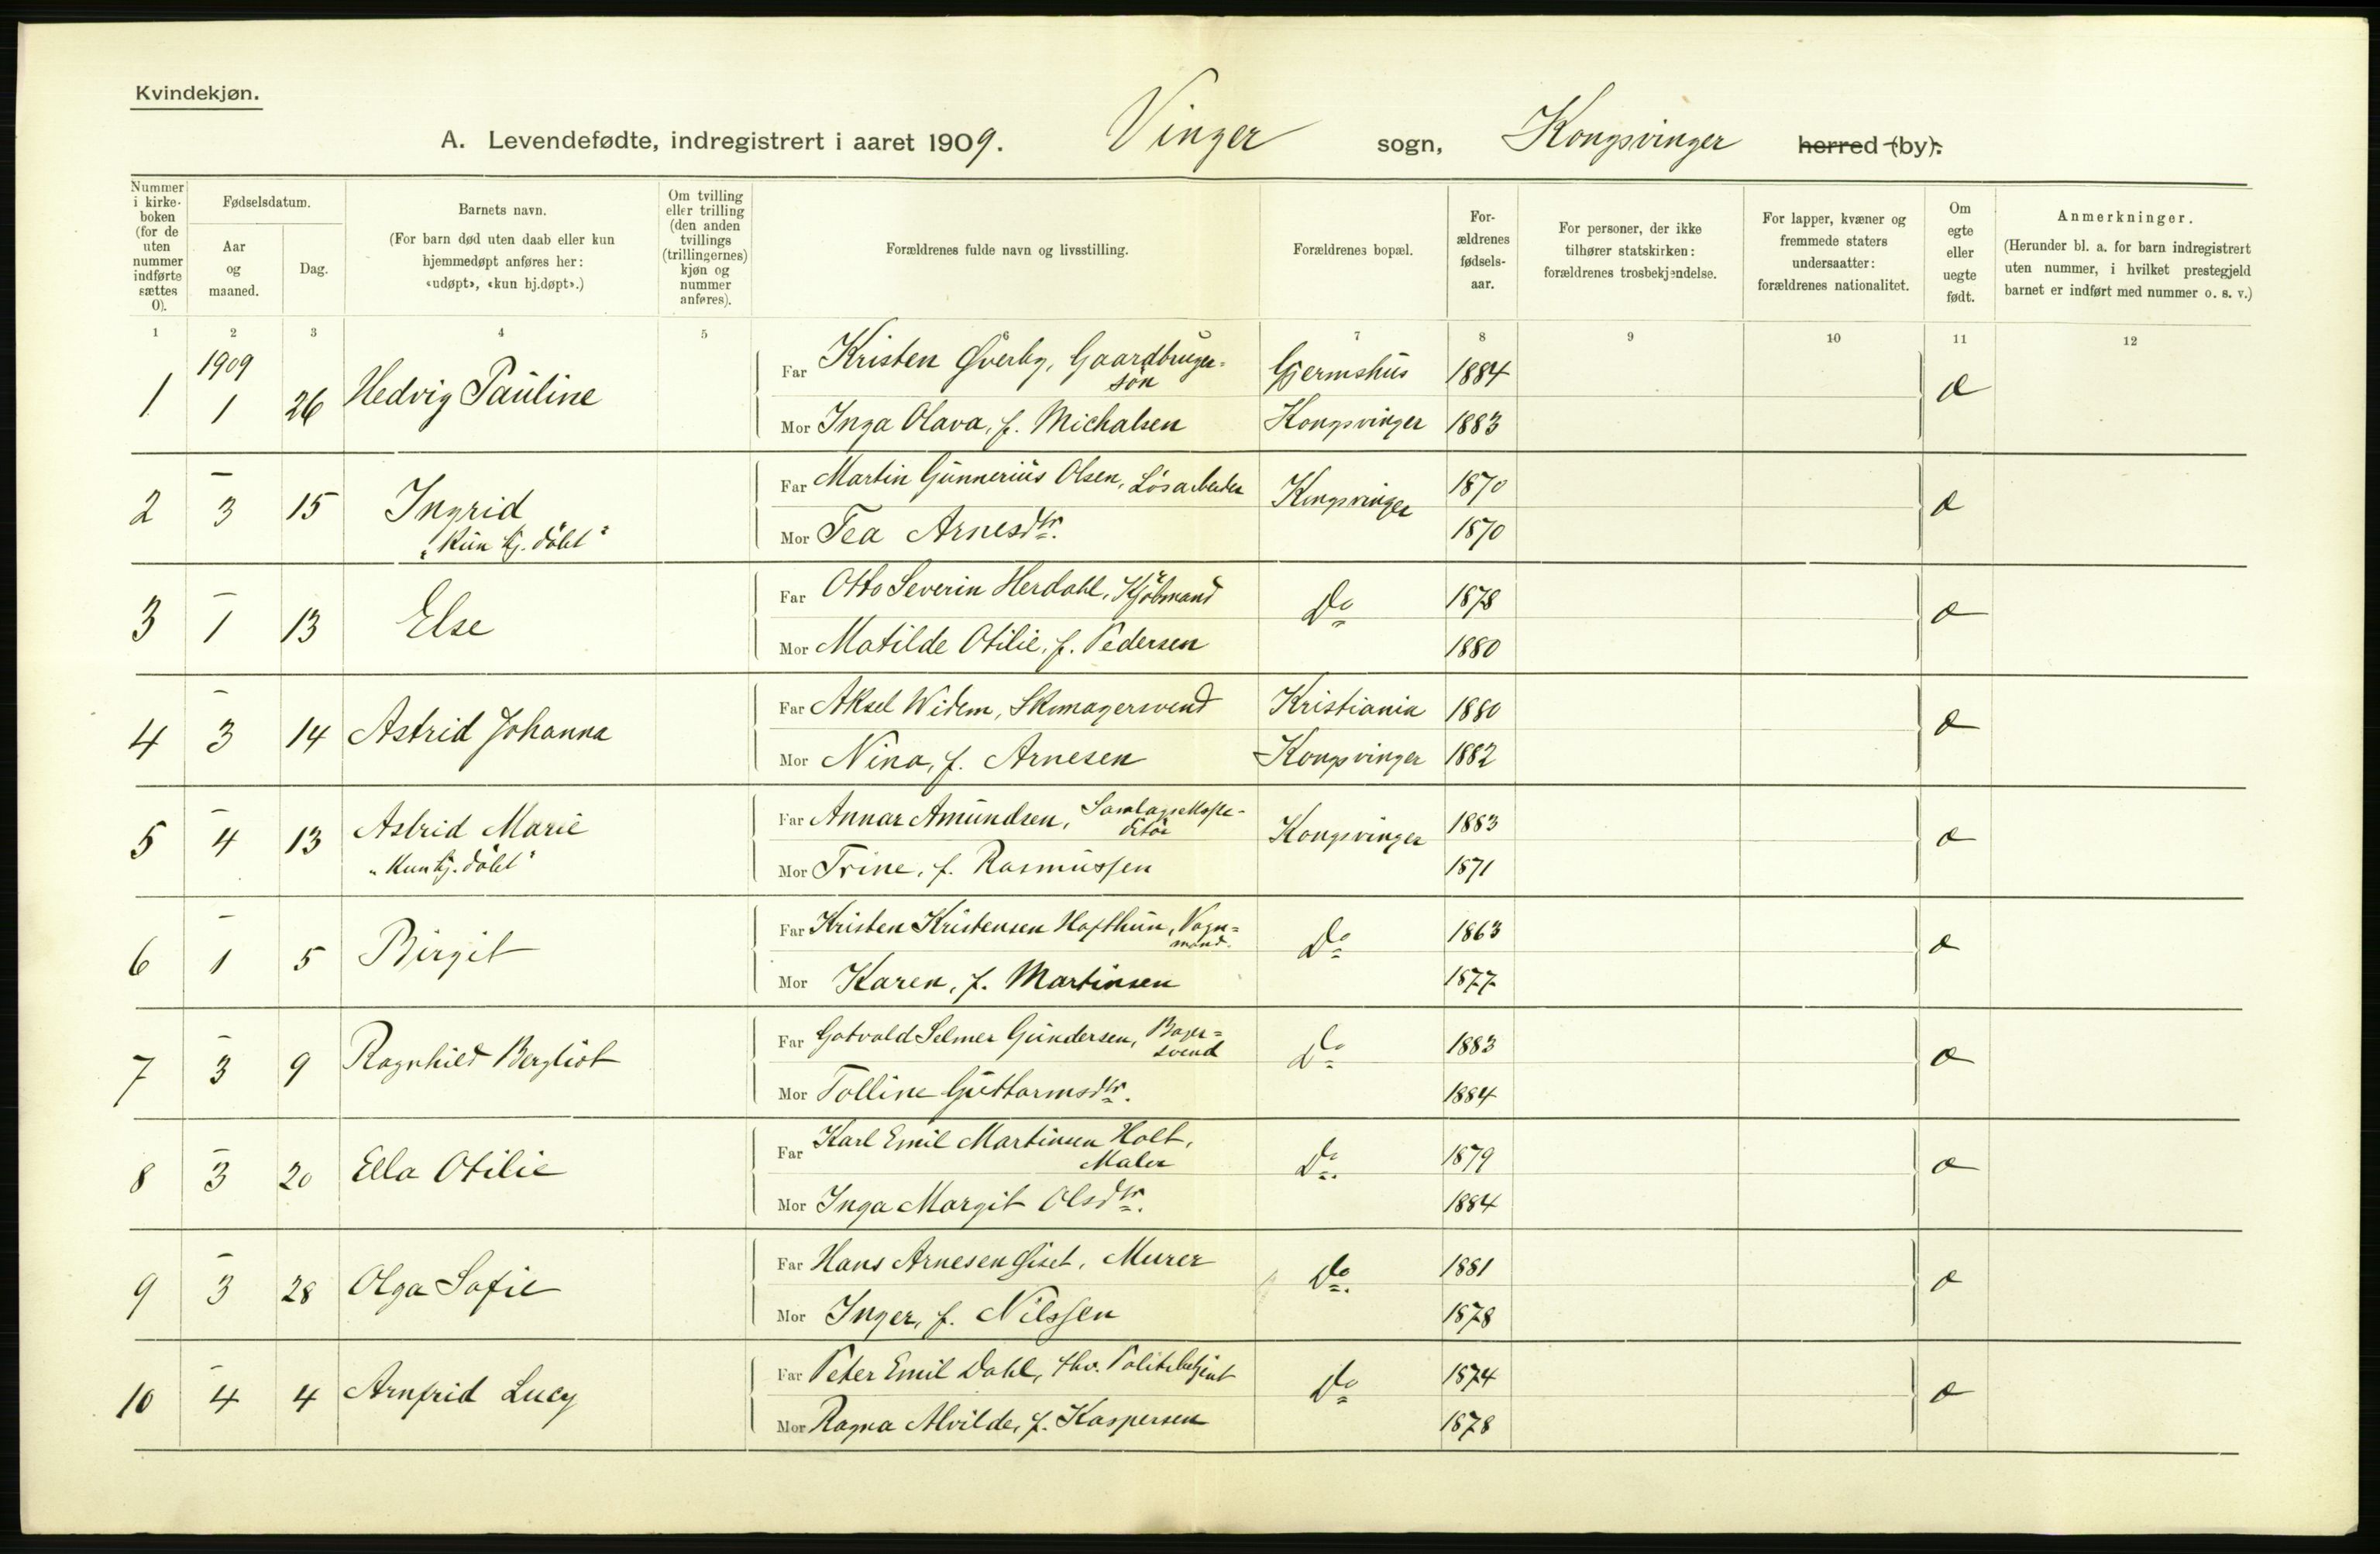 Kvindekjøn.
A. Levendefødte, indregistrert i aaret 1909. Vinger sogn, Kongsvinger herred (by):
Nummer i kirke-boken (for de uten nummer indførte sættes 0).
Fødselsdatum.
Aar og maaned.
Dag.
Barnets navn.
(For barn død uten daab eller kun hjemmedøpt anføres her: «udøpt», «kun bj.døpt».)
Om tvilling eller trilling (den anden tvillings (trillingernes) kjøn og nummer anføres).
Forældrenes fulde navn og livsstilling.
Forældrenes bopæl.
For-ældrenes fødsels-aar.
For personer, der ikke tilhører statskirken: forældrenes trosbekjendelse.
For lapper, kvæner og fremmede staters undersaatter: forældrenes nationalitet.
Om egte eller uegte født.
Anmerkninger.
(Herunder bl. a. for barn indregistrert uten nummer, i hvilket prestegjeld barnet er indført med nummer o. s. v.)
1 2 3 4 5 6 7 8 9 10 11 12
1909
1 1 26 Hedvig Pauline
Far Kristen Øverby, Gaardbruger-
søn Gjermshus 1884
Mor Inga Olava, f. Michalsen Kongsvinger 1883
2 – 3 15 Ingrid
"Kun hj. döbt"
Far Martin Gunnerius Olsen, Løsarbeider Kongsvinger 1870
Mor Tea Arnesdtr. 1870
3 – 1 13 Else
Far Otto Severin Herdahl, Kjöbmand Do 1878
Mor Matilde Otilie, f. Pedersen 1880
4 – 3 14 Astrid Johanna
Far Aksel Widem, Skomagersvend Kristiania 1880
Mor Nina, f. Arnesen Kongsvinger 1882
5 – 4 13 Astrid Marie
"Kun hj. döbt"
Far Annar Amundsen, Samlagsekspe-
ditör Kongsvinger 1883
Mor Trine, f. Rasmussen 1871
6 – 1 5 Birgit
Far Kristen Kristensen Hofthun, Vogn-
mand. Do 1863
Mor Karen, f. Martinsen 1877
7 – 3 9 Ragnhild Bergliot
Far Gotvald Selmer Gundersen, Bager-
svend Do 1883
Mor Tolline Guttormsdtr. 1884
8 – 3 20 Ella Otilie
Far Karl Emil Martinsen Holt,
Maler Do. 1879
Mor Inga Margit Olsdtr. 1884
9 – 3 28 Olga Sofie
Far Hans Arnesen, Murer Do. 1881
Mor Inger, f. Nilssen 1878
10 – 4 4 Arnfrid Lucy
Far Peter Emil Dahl, Politibetjent Do 1874
Mor Ragna Alvilde, f. Kaspersen 1878